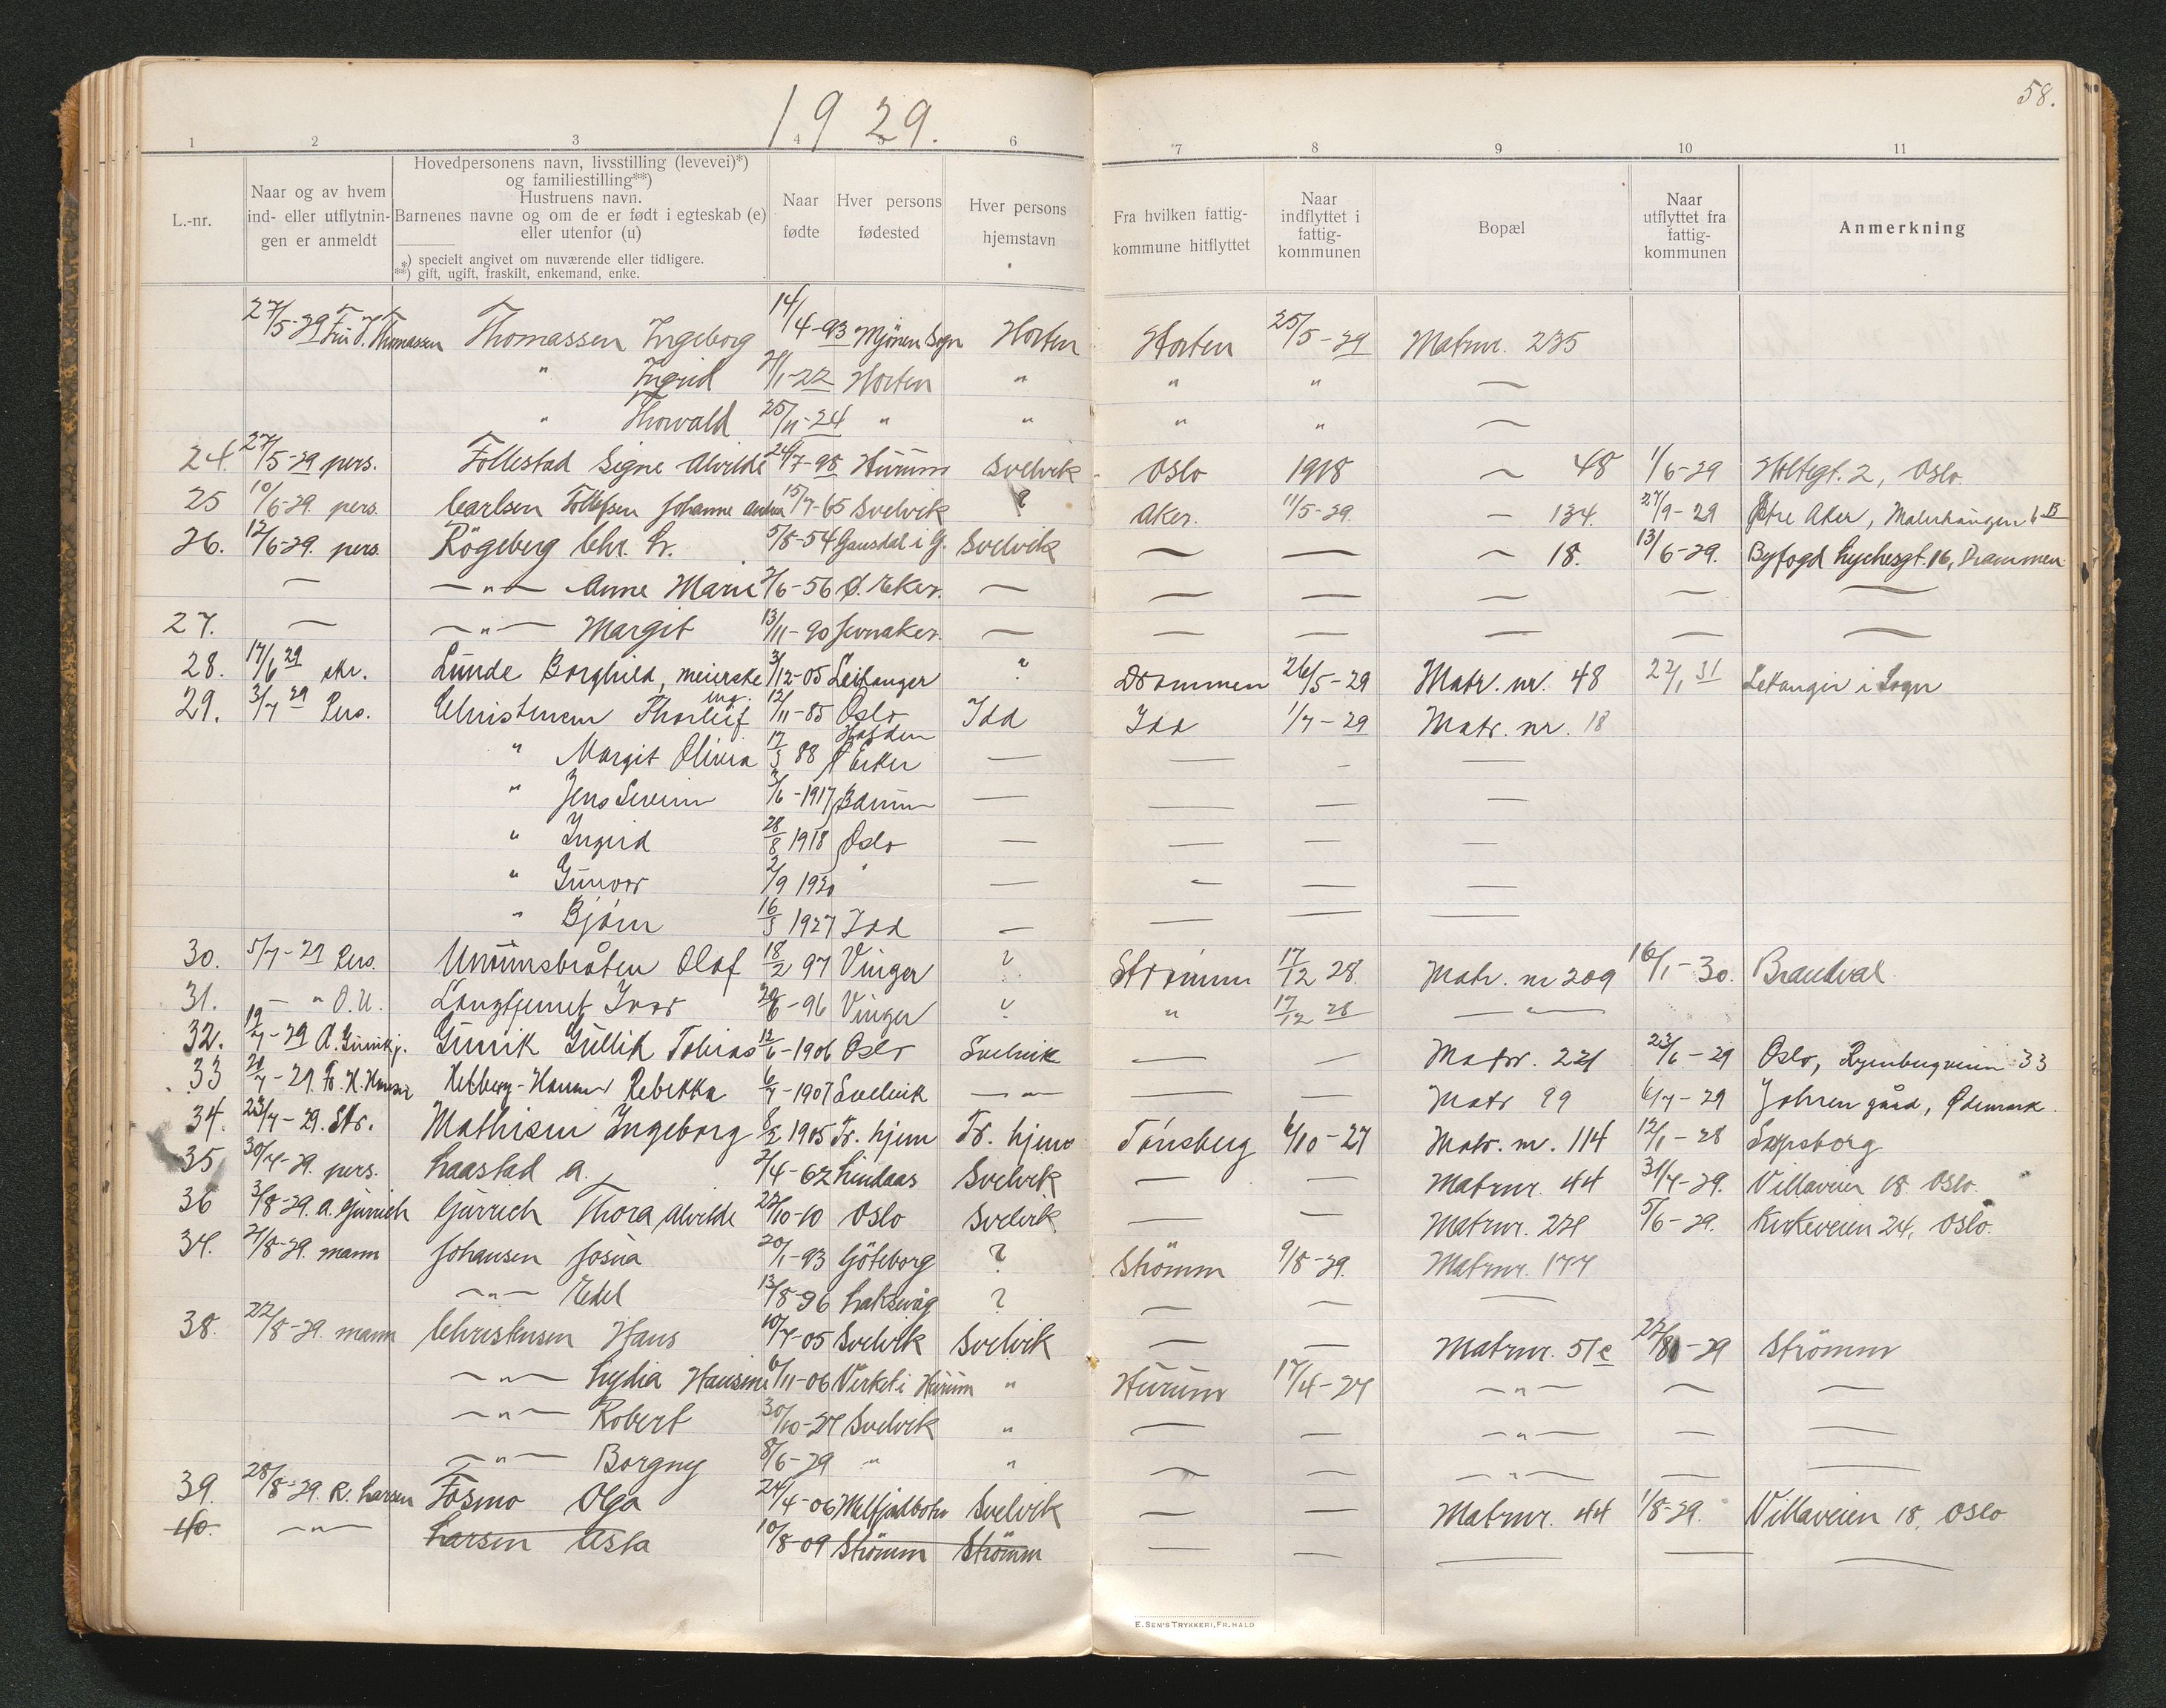 1929.
58.
1 2 3 4 5 6 7 8 9 10 11
L.-nr.
Naar og av hvem
ind- eller utflytnin-
gen er anmeldt
Hovedpersonens navn, livsstilling (levevei)*)
og familiestilling**)
Hustruens navn.
Barnenes navne og om de er født i egteskab (e)
eller utenfor (u)
*) specielt angivet om nuværende eller tidligere.
**) gift, ugift, fraskilt, enkemand, enke.
Naar
fødte
Hver persons
fødested
Hver persons
hjemstavn
Fra hvilken fattig-
kommune hitflyttet
Naar
indflyttet i
fattig-
kommunen
Bopæl
Naar
utflyttet fra
fattig-
kommunen
Anmerkning
27/5-29 Fru T. Thomassen Thomassen Ingeborg 14/4-93 Mjönen Sogn Horten Horten 25/5-29 Matrnr. 235
" Ingrid /1-22 Horten " " " —
" Thorvald 25/11-24 " " " " —
24. 27/5-29 pers. Follestad Signe Alvilde 24/7-98 Hurum Svelvik Oslo 1918 — 48 1/6-29 Holtegt. 2, Oslo.
25 10/6-29. pers. Carlsen Tollefsen Johanne Andrea 15/7-65 Svelvik ? Aker. 11/5-29. — 134. 27/9-29 Østre Aker, Malerhaugen 6 B
26. 12/6-29. pers. Rögeberg Chr. L. 5/8-54 Gausdal i G. Svelvik — — — 18. 13/6-29. Byfogd Lychesgt. 16, Drammen
— —"— Anne Marie 2/6-56 Ø. Eker. — — — — — —
27. — —"— Margit 13/11-90 Jevnaker. — — — — — —
28. 17/6 29 skr. Lunde Borghild, meierske 3/12-05 Leikanger ? Drammen 26/5-29 Matr. nr. 48 22/1 31 Lekanger i Sogn
29. 3/7 29 Pers. Christensen Thorleif ing. 12/11-85 Oslo Idd Idd 1/7-29 Matr. nr. 18
" Margit Olivia 17/3 88 Halden — — — —
" Jens Severin 3/6-1917 Bærum — — — —
" Ingrid 28/8 1918 Oslo — — — —
" Gunvor 2/9 1920 " — — — —
" Bjørn 16/3 1927 Idd — — — —
30. 5/7-29 Pers. Olaf 18/2 97 Vinger ? Strømm 17/12 28. Matr. nr 209 16/1-30. Brandval
31. — " O.U. Ivar 20/6-96 Vinger ? " 17/12 28 —"—
32. 19/7-29 A. Gunik j. Gunik Gullik Tobias 12/6-1906 Oslo Svelvik — — Matr. 221 23/6-29 Oslo, Ryenbergveien 33
33 20/7-29. Fr. H. Hansen Helberg-Hansen Rebekka 6/7-1907 Svelvik —"— — — Matr 99 6/7-29 gård, Ødemark.
34. 23/7-29. Skr. Mathisen Ingeborg 8/2 1905 Tr. hjem Tr. hjem Tönsberg 6/10-27 Matr. nr. 114 12/1-28 Sarpsborg
35 30/7-29. pers. Laastad A. 2/4-62 Lindaas Svelvik — — Matrnr. 44 31/7-29. Villaveien 18 Oslo.
36 3/8-29. A. Gjurrich Gjurrich Thora Alvilde 22/10-10 Oslo Svelvik — — Matrnr. 221 5/6-29. Kirkeveien 24, Oslo.
37. 2/8-29. mann Johansen Josua 20/1-93 Göteborg ? Strömm 9/8-29. Matrnr. 177
—"— Edel 13/8-96 Laksevåg ? — — —
38. 22/8-29. mann Christensen Hans 10/7-05 Svelvik Svelvik — — Matrnr. 51c 22/8-29 Strömm
—"— Lydia Hansine 6/11-06 Verket i Hurum " Hurum 17/4-27 —"— — —
—"— Robert 30/10-27 Svelvik " — — —"— — —
—"— Borgny 8/6-29 " " — — —"— — —
39. 28/8-29. R. Larsen Fosmo Olga 24/4-06 Svelvik — — Matrnr. 44 1/8-29. Villaveien 18, Oslo
40. —"— Larsen Asta 10/8-09 Strömm Strömm — — — — —
E. SEM'S TRYKKERI, FR.HALD